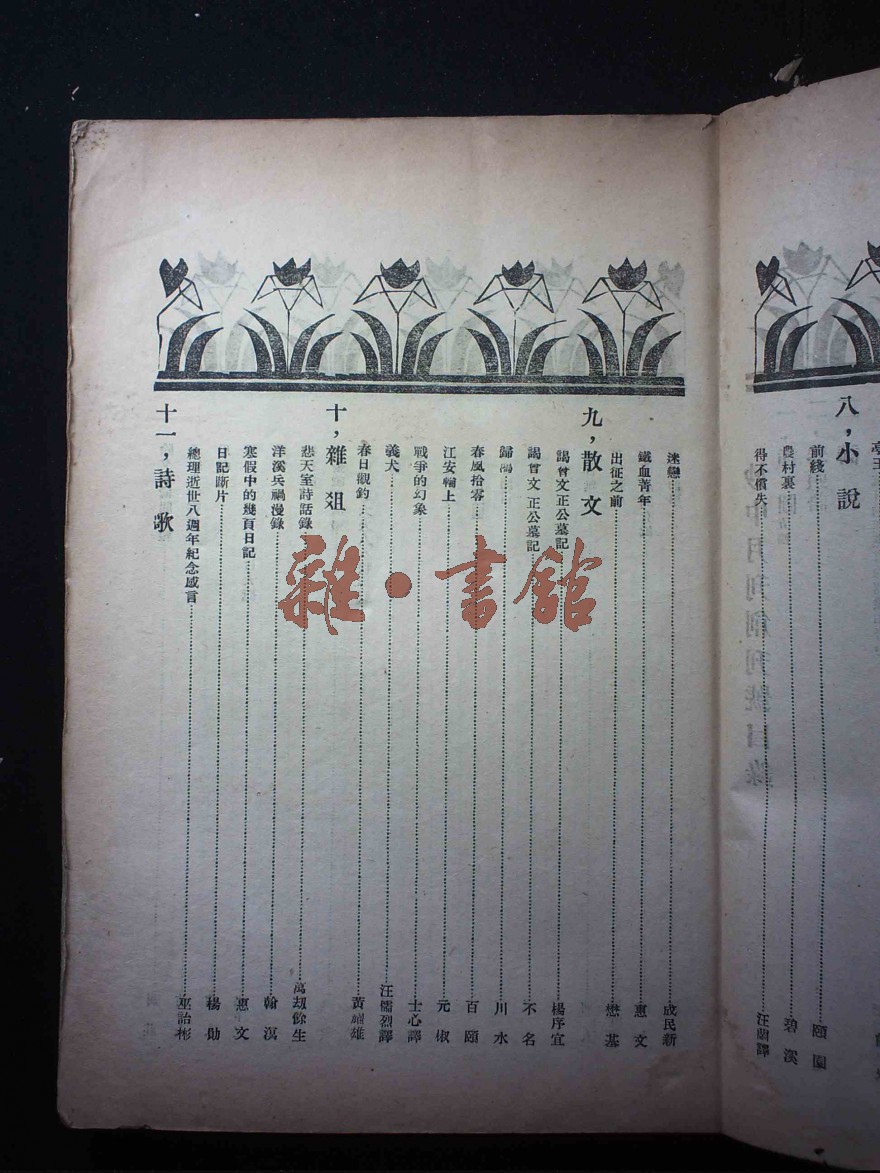 八，小說
前綫 頤園
農村裏 碧溪
得不償失 汪蘭譯
迷戀 成民新
鐵血菁年 惠文
出征之前 懋基
九，散文
謁曾文正公墓記 楊序宣
謁曾文正公墓記 不名
歸鴻 川水
春風拾零 百頤
江安輪上 元椒
戰爭的幻象 士心譯
義犬 汪儒烈譯
春日觀釣 黃雄
十，雜俎
悲天室詩話錄 萬刧餘生
洋溪兵禍漫錄 翰溟
寒假中的幾頁日記 惠文
日記斷片 楊勛
總理逝世八週年紀念感言 巫詒彬
十一，詩歌
雜·書館